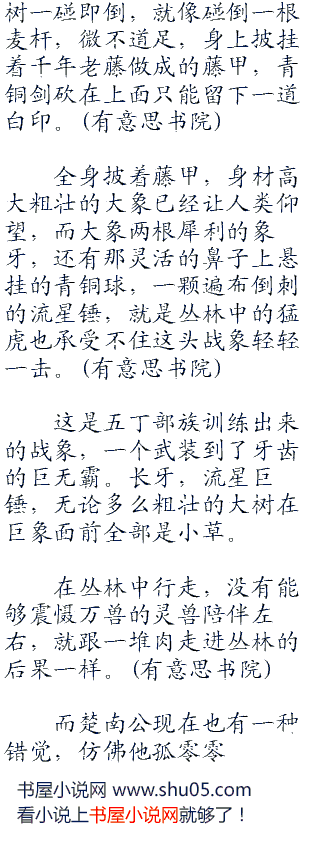 树一碰即倒，就像碰倒一根
麦杆，微不道足，身上披挂
着千年老藤做成的藤甲，青
铜剑砍在上面只能留下一道
白印。（有意思书院）
全身披着藤甲，身材高
大粗壮的大象已经让人类仰
望，而大象两根犀利的象
牙，还有那灵活的鼻子上悬
挂的青铜球，一颗遍布倒刺
的流星锤，就是丛林中的猛
虎也承受不住这头战象轻轻
一击。（有意思书院）
这是五丁部族训练出来
的战象，一个武装到了牙齿
的巨无霸。长牙，流星巨
锤，无论多么粗壮的大树在
巨象面前全部是小草。
在丛林中行走，没有能
够震慑万兽的灵兽陪伴左
右，就跟一堆肉走进丛林的
后果一样。（有意思书院）
而楚南公现在也有一种
错觉，仿佛他孤零零
书屋小说网 www.shu05.com
看小说上书屋小说网就够了！